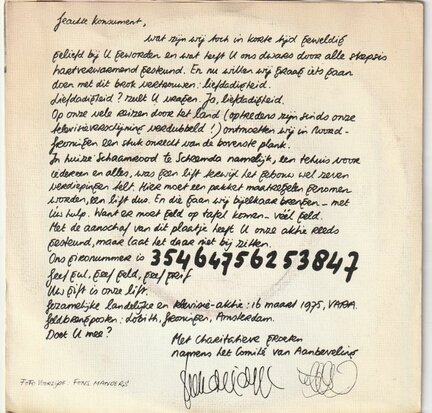 Geachte Konsument,
wat zijn wij toch in korte tijd geweldig
geliefd bij U geworden en wat heeft U ons dwars door alle skepsis
hartverwarmend gesteund. En nu willen wij graag iets gaan
doen met dit brok vertrouwen: liefdadigheid.
Liefdadigheid? zult U vragen. Ja, liefdadigheid.
Op onze vele reizen door het land (optredens zijn sinds onze
televisieverschijning verdubbeld!) ontmoetten wij in Noord-
Groningen een stuk onrecht van de bovenste plank.
In huize Schaamrood te Scheemda namelijk, een tehuis voor
iedereen en alles, was geen lift terwijl het gebouw wel zeven
verdiepingen telt. Hier moet een pakket maatregelen genomen
worden, een lift dus. En die gaan wij bijelkaar brengen - met
Uw hulp. Want er moet geld op tafel komen - véél geld.
Met de aanschaf van dit plaatje heeft U onze aktie reeds
gesteund, maar laat het daar niet bij zitten.
Ons gironummer is 354647562 53847
Geef gul, geef geld, geef grif
Uw gift is onze lift.
Gezamelijke landelijke en televisie-aktie: 16 maart 1975, VARA.
Geldbrengposten: Lobith, Groningen, Amsterdam.
Doet U mee?
Met Charitatieve groeten
namens het Comité van Aanbeveling
FOTO VOORZIJDE: FONS MANDERS